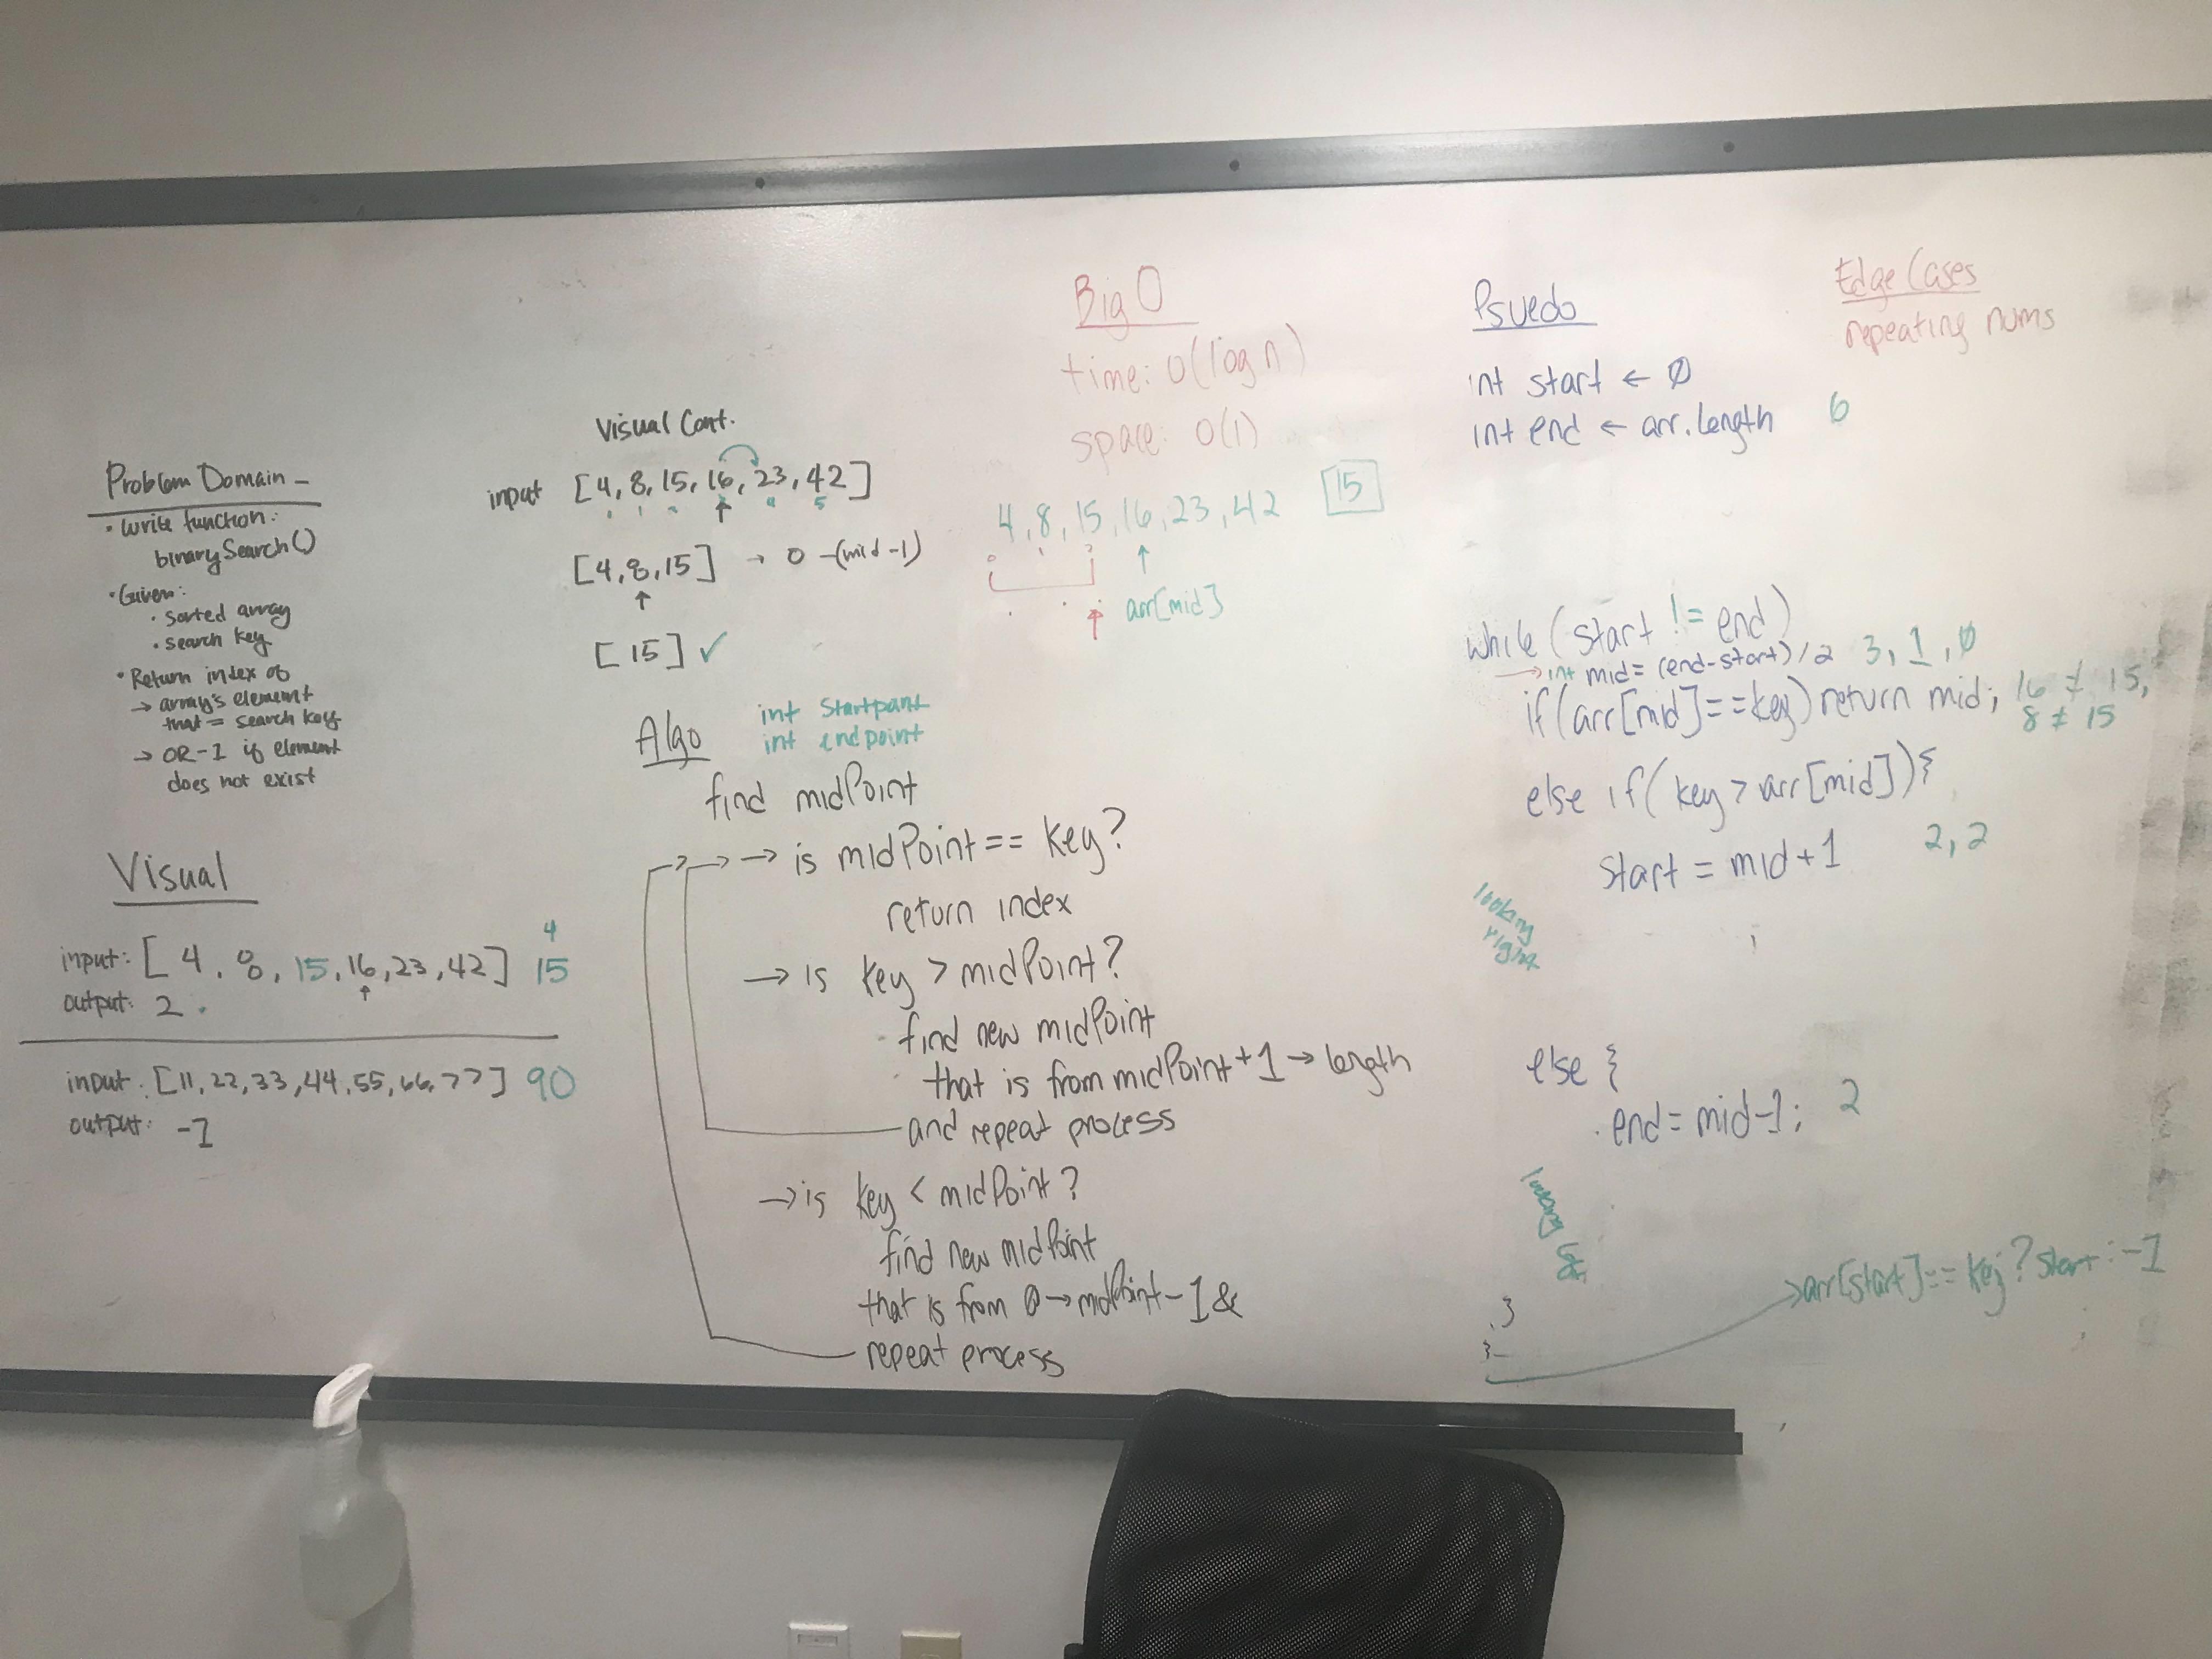 Problem Domain -
• Write function:
binarySearch()
• Given:
• sorted array
• search key
• Return index of
→ array's element
that = search key
→ OR -1 if element
does not exist
Visual
4
input: [4, 8, 15, 16, 23, 42] 15
↑
output: 2
input: [11, 22, 33, 44, 55, 66, 77] 90
output: -1
Visual Cont.
input [4, 8, 15, 16, 23, 42]
↑
[4, 8, 15] → 0 -(mid -1)
↑
[15] ✓
Algo
int Startpoint
int endpoint
find midPoint
→ is midPoint == key?
return index
→ is key > midPoint?
find new midPoint
that is from midPoint +1 → length
and repeat process
→ is key < midPoint?
find new midPoint
that is from 0 → midPoint - 1 &
repeat process
Big O
time: O(log n)
space: O(1)
4, 8, 15, 16, 23, 42 [15]
↑ arr[mid]
Psuedo
int start ← 0
int end ← arr.length 6
while (start != end)
→ int mid = (end-start)/2 3, 1, 0
if (arr[mid] == key) return mid; 16 ≠ 15,
8 ≠ 15
else if (key > arr[mid]) {
start = mid + 1 2, 2
looking
right
else {
end = mid-1; 2
looking
}
}
→ arr[start] == key ? start : -1
Edge Cases
repeating nums